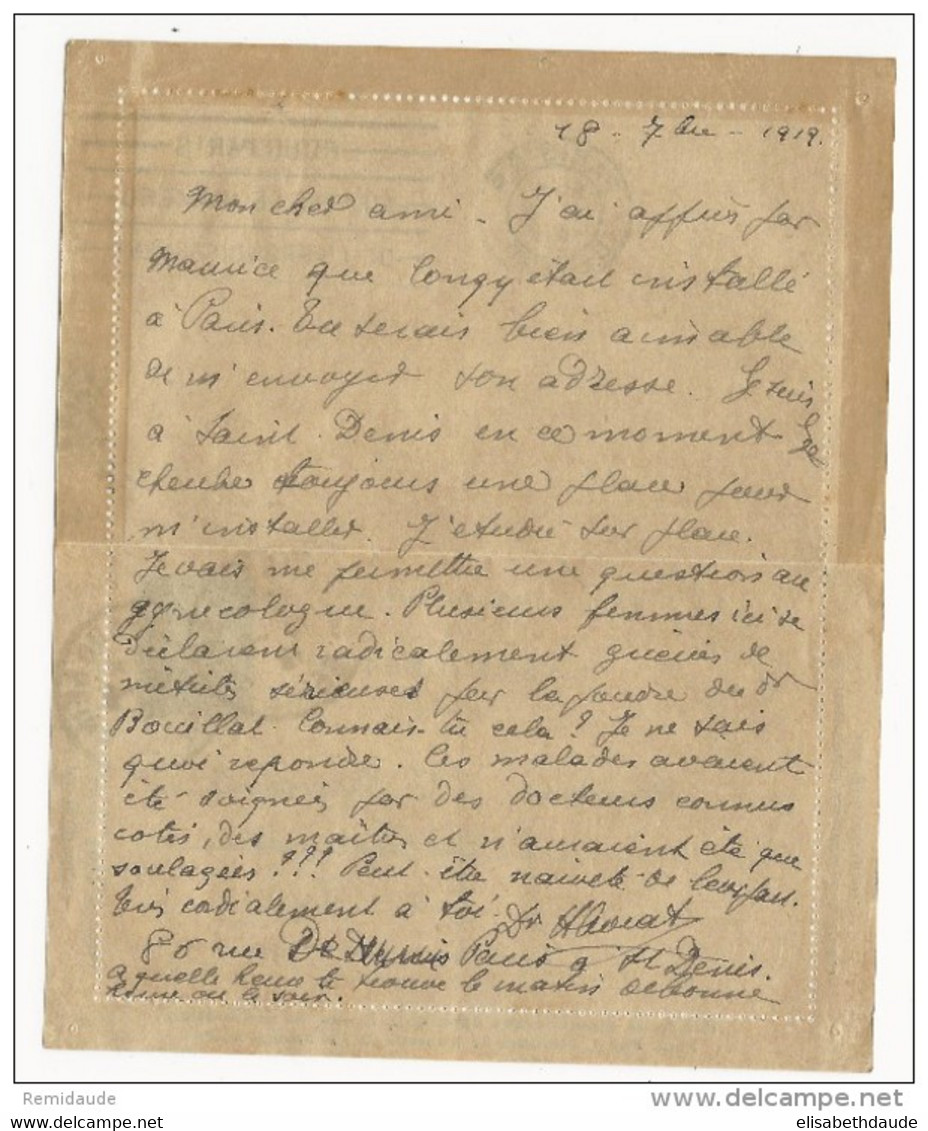 18 - 7bre - 1919.
Mon cher ami - J'ai appris par
Maurice que Longy était installé
à Paris. Tu serais bien aimable
de m'envoyer son adresse. Je suis
à Saint-Denis en ce moment & je
cherche toujours une place pour
m'installer. J'étudie sur place.
Je vais me permettre une question au
gynecologue. Plusieurs femmes ici se
déclarent radicalement guéries de
métrites sérieuses par la poudre du Dr
Bouillat. Connais-tu cela? Je ne sais
quoi repondre. Ces malades avaient
été soignées par des docteurs connus
cotés, des maîtres et n'auraient été que
soulagées!??! Peut-être naiveté de leur part.
Très cordialement à toi. Dr
86 rue de Paris à St Denis.
A quelle heure te trouve le matin de bonne
heure ou le soir.
Remidaude
©elisabethdaude
www.delcampe.net